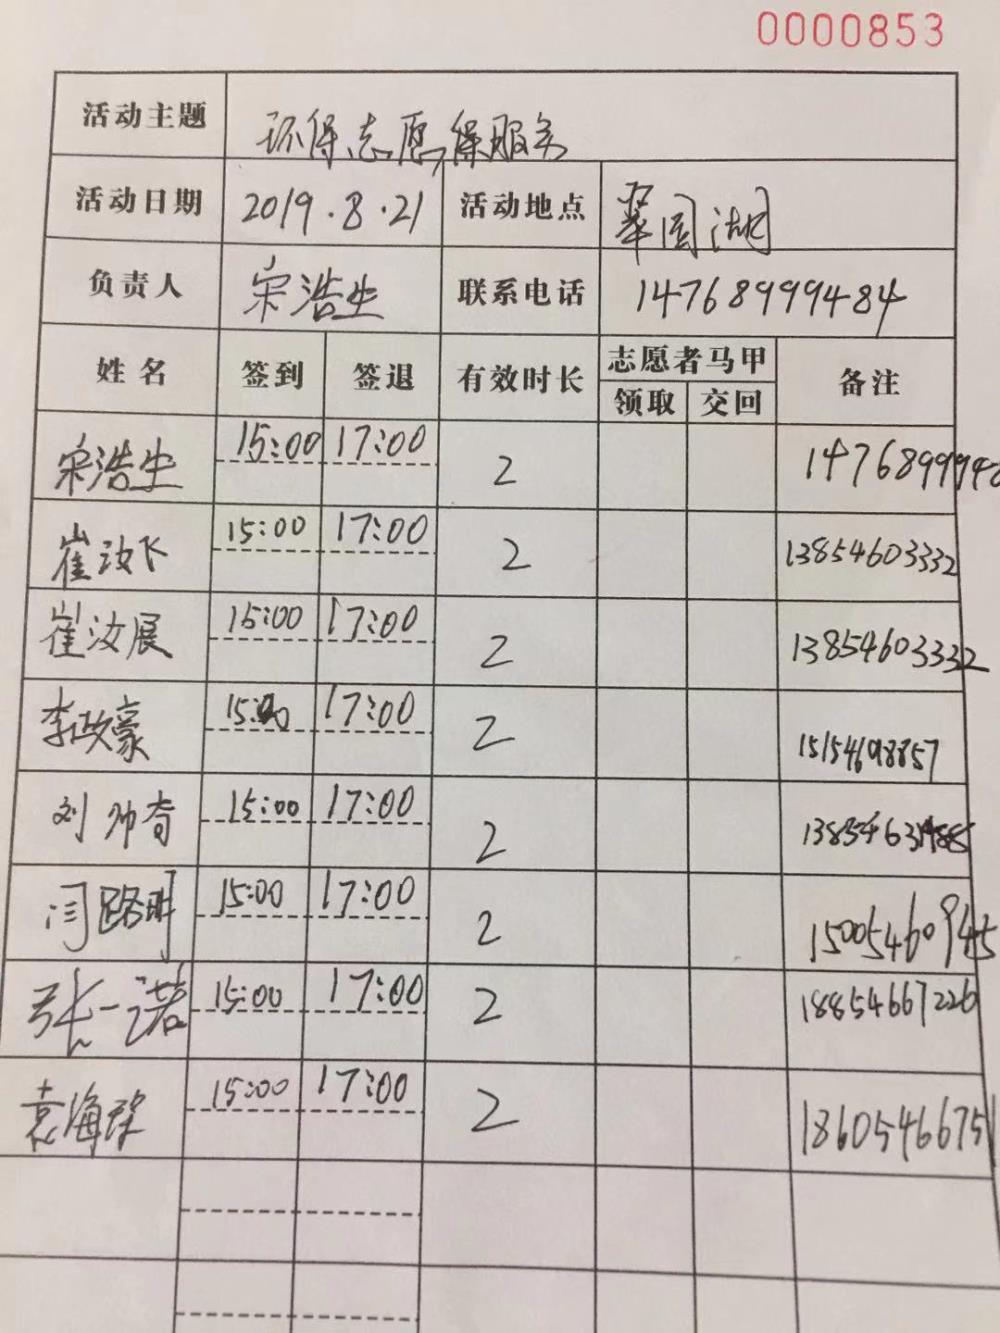 0000853
活动主题 环保志愿者服务
活动日期 2019.8.21 活动地点 翠园湖
负责人 宋浩生 联系电话 14768999484
姓名 签到 签退 有效时长 志愿者马甲 备注
领取 交回
宋浩生 15:00 17:00 2 1476899948
崔汝飞 15:00 17:00 2 13854603332
崔汝展 15:00 17:00 2 13854603332
李政豪 15:00 17:00 2 15154698857
刘帅奇 15:00 17:00 2
闫路明 15:00 17:00 2 15005460945
张一诺 15:00 17:00 2 18854667226
袁海 15:00 17:00 2 18605466751